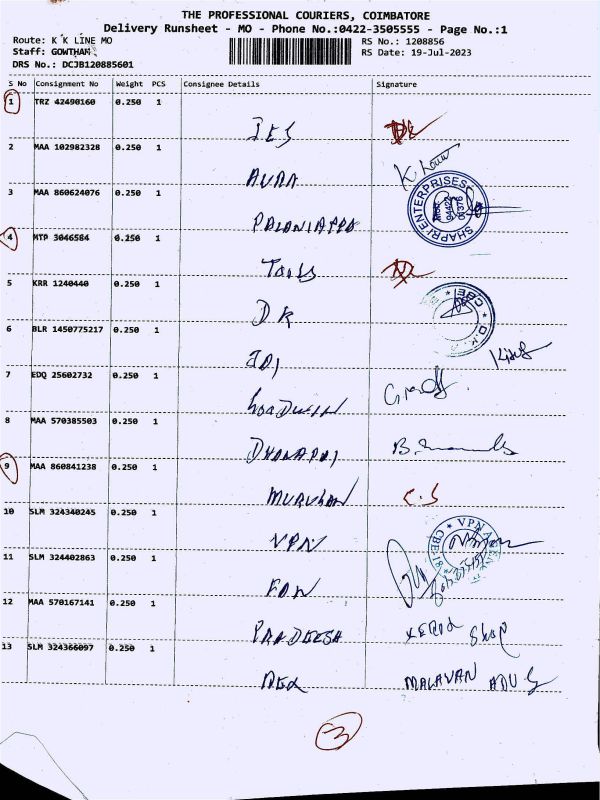 THE PROFESSIONAL COURIERS, COIMBATORE
Delivery Runsheet - MO - Phone No.:0422-3505555 - Page No.:1
Route: K K LINE MO RS No.: 1208856
Staff: GOWTHAM RS Date: 19-Jul-2023
DRS No.: DCJB120885601
S No Consignment No Weight PCS Consignee Details Signature
1 TRZ 42490160 0.250 1
IES
2 MAA 102982328 0.250 1
AURA
3 MAA 860624076 0.250 1
SHAPRI ENTERPRISES
PALANIAPPA
4 MTP 3046584 0.250 1
5 KRR 1240440 0.250 1
DK
6 BLR 1450775217 0.250 1
ADI
7 EDQ 25602732 0.250 1
GOODWIN
8 MAA 570385503 0.250 1
DHANAPAL
9 MAA 860841238 0.250 1
MURUGAN C.S
10 SLM 324340245 0.250 1
VPN
11 SLM 324402863 0.250 1
12 MAA 570167141 0.250 1
PRADEESH XEROX SHOP
13 SLM 324366097 0.250 1
MALAVAN
3